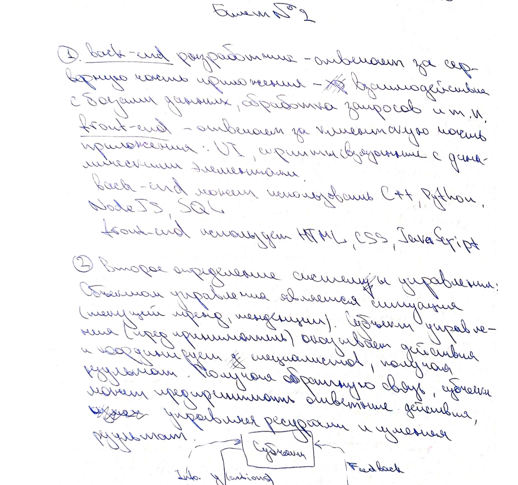 Билет №2
① back-end разработчик - отвечает за сер-
верную часть приложения - взаимодействие
с базами данных, обработка запросов и т.п.
front-end - отвечает за клиентскую часть
приложения: UI, скрипты связанные с дина-
мическими элементами.
back-end может использовать C++, Python,
NodeJS, SQL
front-end использует HTML, CSS, JavaScript
② Второе определение системы управления:
Объектом управления является ситуация
(текущий тренд, тенденции). Субъект управле-
ния (предприниматель) оказывает действия
и координирует специалистов, получая
результат. Получая обратную связь, субъект
может предпринимать ответные действия,
управляя ресурсами и изменяя
результат.
Субъект
Info.
Feedback